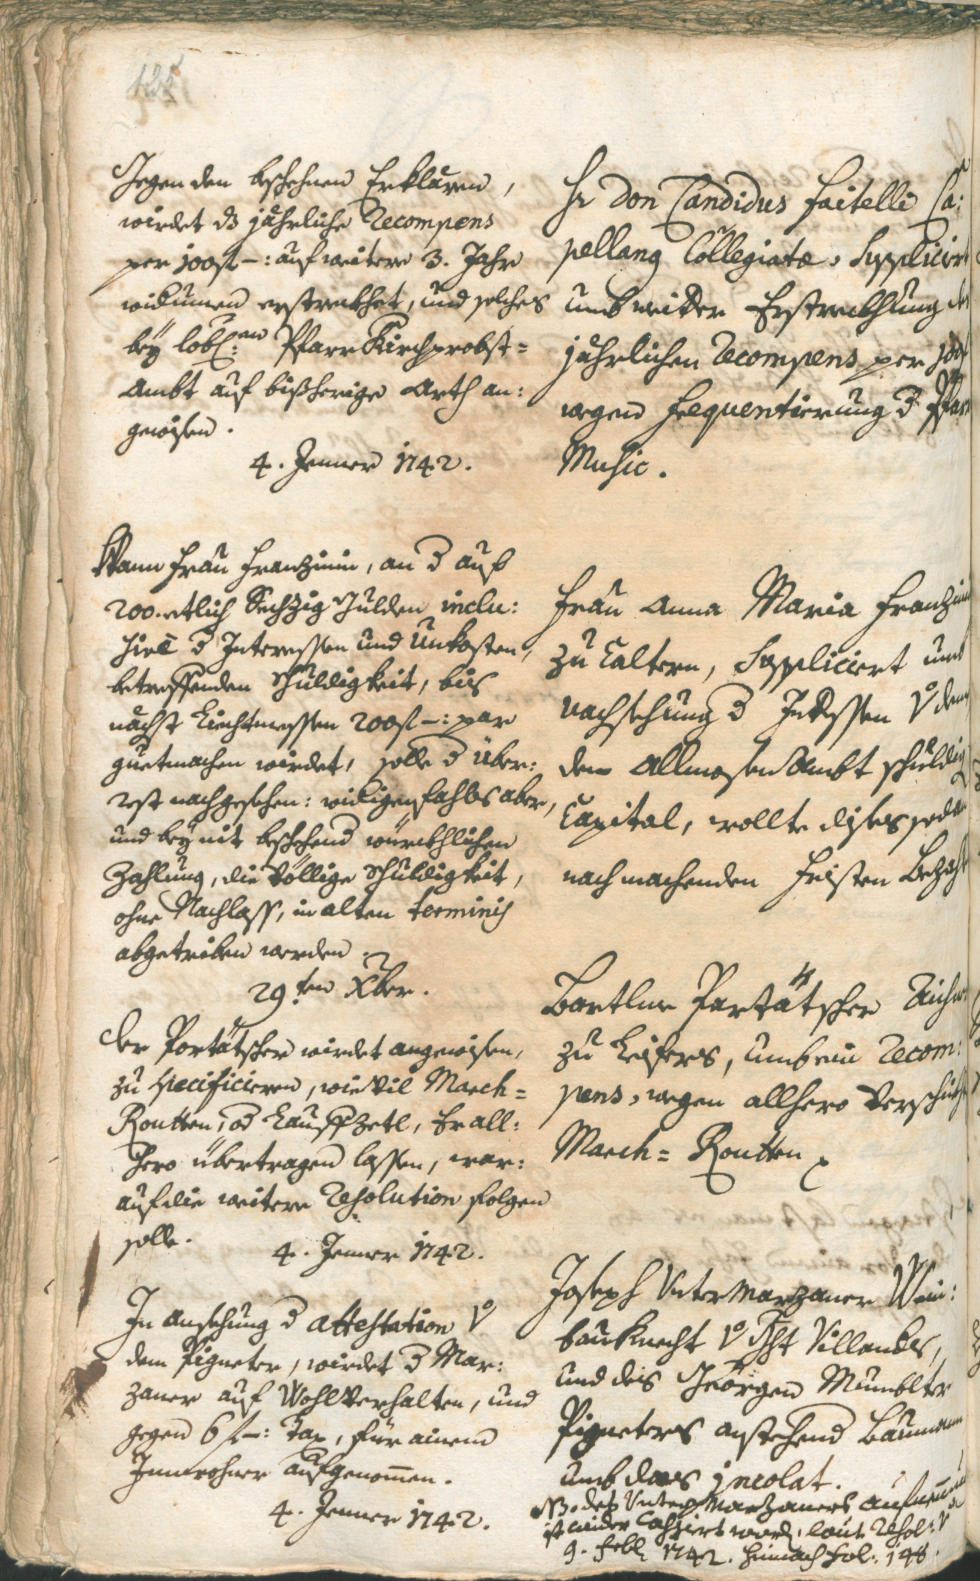 125
Gegen den beschehnen Erklären,
wirdet ds jährliche Recompens
per 100 fl –: auf weitere 3. Jahr
widumen erstreckhet, und solches
bey lobl: en Pfarr Kirchprobst=
Ambt auf bißherige Arth an:
gewisen.
4. Jenner 1742.
Hr Don Candidus Faitelli Ca:
pellang Collegiatæ, Suppliciert
umb weiter Erstreckhung
jährlichen Recompens per
wegen frequentierung d Pfarr
Music.
Wann Frau Franzinin, an d auf
200. etlich Sechzig Gulden inclu:
sive d Interessen und Unkosten,
betreffenden Schuldigkeit, bis
nächst Liechtmessen 200 fl –: par
guetmachen wirdet, solle d über:
rest nachgesehen: widrigenfahls aber,
und bey nit beschehend würckhlichen
Zahlung, die völlige Schuldigkeit,
ohne Nachlass, in alten terminis
abgetriben werden.
29. ten Xber.
Frau Anna Maria Franzin
zu Caltern, Suppliciert umb
Nachsehung d Interessen V dem
dem Allmosen Ambt schuldig
Capital, wollte dises
nach machenden Fristen Bezahl
Der Portätscher wirdet angewisen,
zu specificieren, wie vil March=
Routten, od Lauffzetl, Er all:
hero übertragen lassen, war:
auf die weitere Resolution folgen
solle.
4. Jenner 1742.
Bartlme Partätscher
zu Leifers, umb ein Recom:
pens, wegen allhero
March= Routten
In ansehung d attestation V
dem Pigneter, wirdet d Mar:
zaner auf Wohlverhalten, und
gegen 6 fl –: Tax, für ainen
Innwohner aufgenommen.
4. Jenner 1742.
Joseph Untermarzaner Wein:
bauKnecht V Villanders,
und des Geörgen Mumblter
Pigneters anstehend Baumann
umb das jncolat.
NB. des Untermarzaners
ist wider Cassiert word. laut Resol: V
9. Febr. 1742. hinnach Fol: 148.